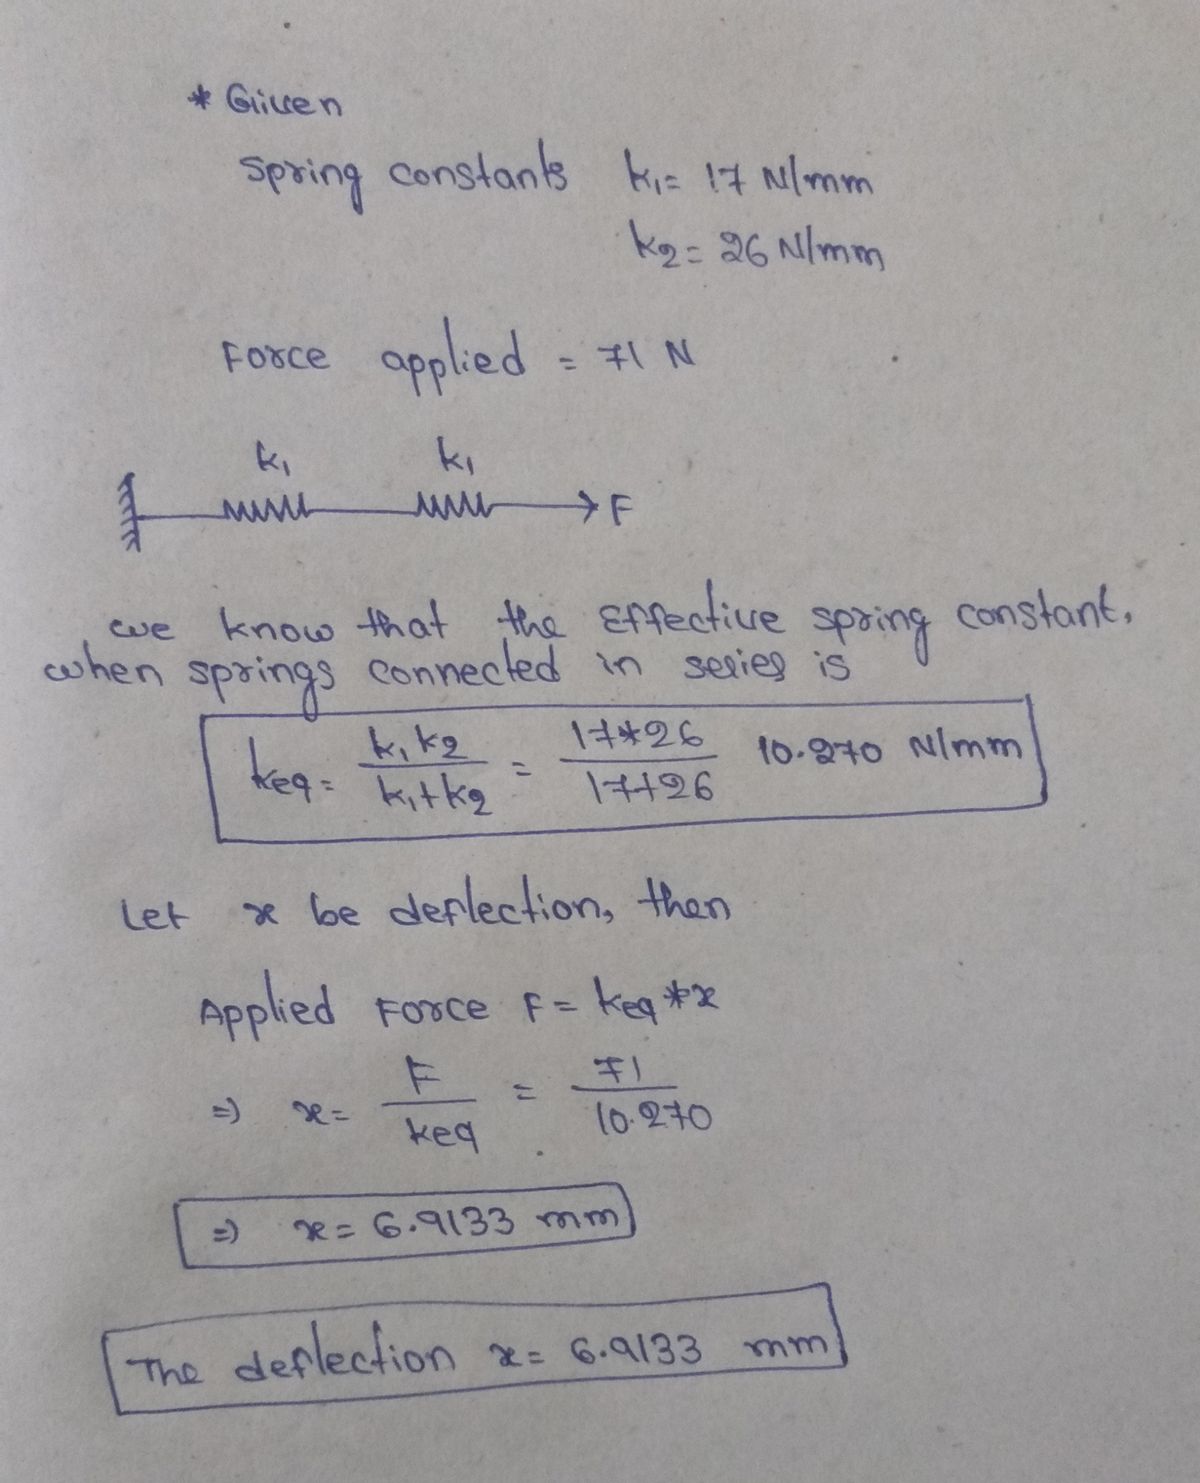 * Given
Spring constants k₁= 17 N/mm
k2= 26 N/mm
Force applied = 71 N
k₁ k₁
F
we know that the Effective spring constant,
when springs connected in series is
keq= k₁k2/k₁+k2 = 17*26/17+26 10.270 N/mm
Let x be deflection, then
Applied Force F= keq*x
⇒ x= F/keq = 71/10.270
⇒ x= 6.9133 mm
The deflection x= 6.9133 mm